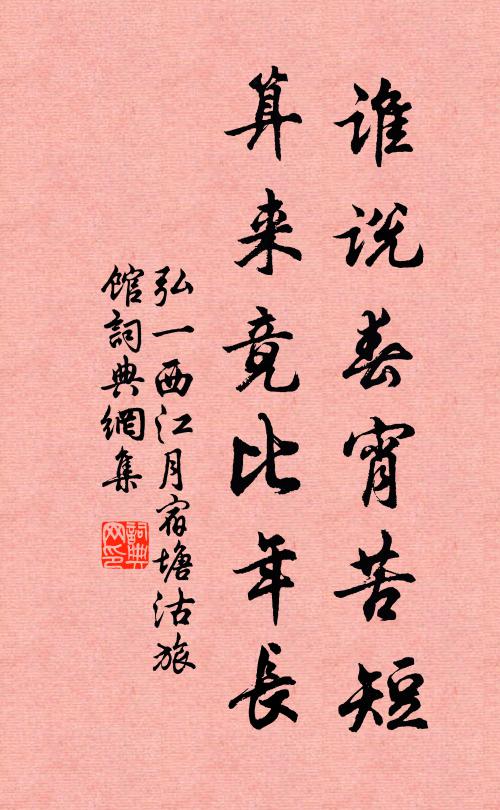 谁说春宵苦短
算来竟比年长
弘一西江月宿塘沽旅
馆詞典網集
詞典網印